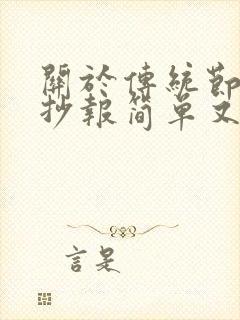 關於傳統節
抄報简单又
言是